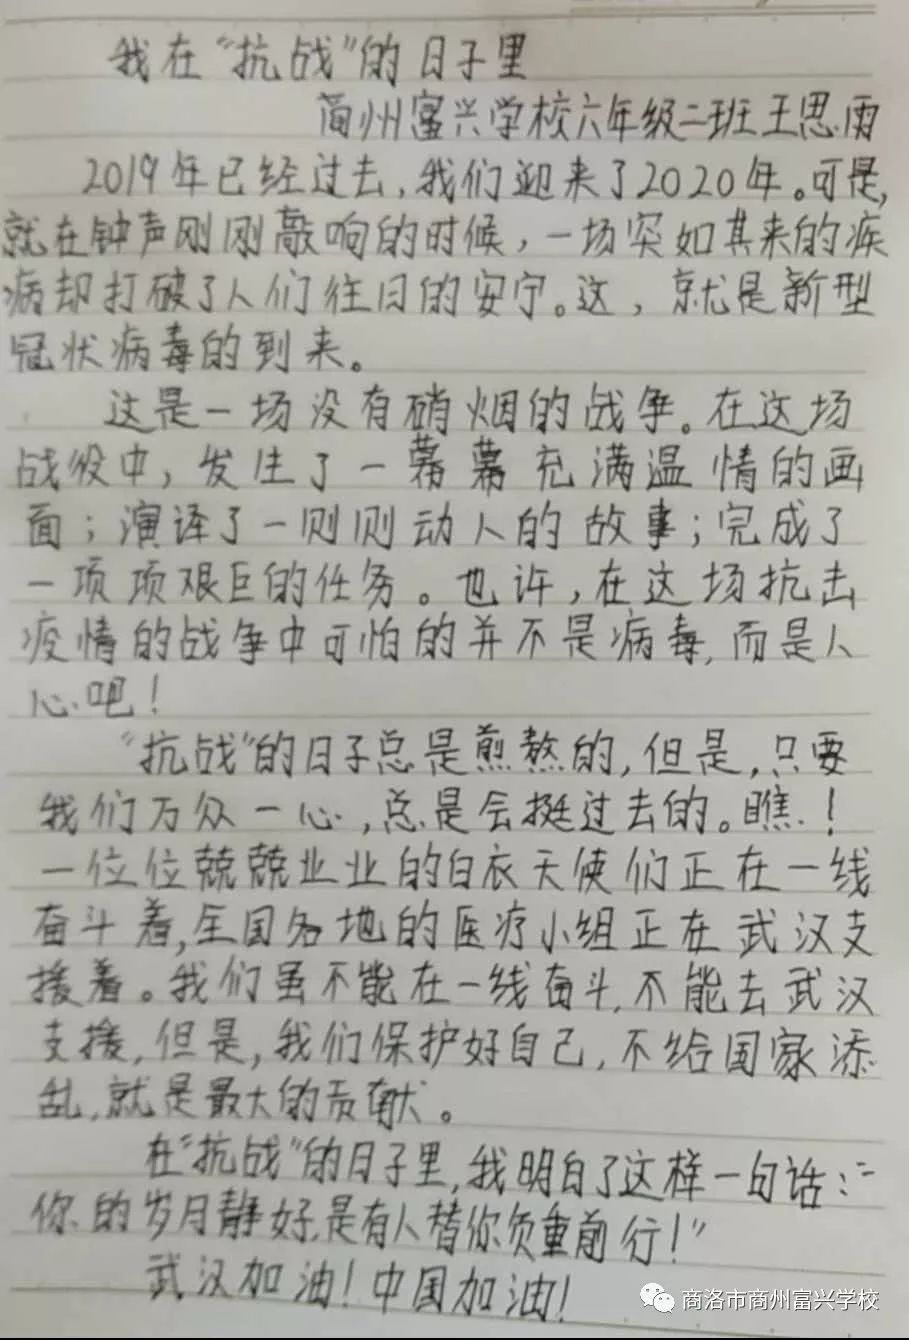 我在“抗战”的日子里
商州富兴学校六年级二班王思雨
2019年已经过去,我们迎来了2020年。可是,
就在钟声刚刚敲响的时候,一场突如其来的疾
病却打破了人们往日的安宁。这,就是新型
冠状病毒的到来。
这是一场没有硝烟的战争。在这场
战役中,发生了一幕幕充满温情的画
面;演译了一则则动人的故事;完成了
一项项艰巨的任务。也许,在这场抗击
疫情的战争中可怕的并不是病毒,而是人
心吧!
“抗战”的日子总是煎熬的,但是,只要
我们万众一心,总是会挺过去的。瞧!
一位位兢兢业业的白衣天使们正在一线
奋斗着,全国各地的医疗小组正在武汉支
援着。我们虽不能在一线奋斗,不能去武汉
支援,但是,我们保护好自己,不给国家添
乱,就是最大的贡献。
在“抗战”的日子里,我明白了这样一句话:“
你的岁月静好,是有人替你负重前行!”
武汉加油!中国加油!
商洛市商州富兴学校